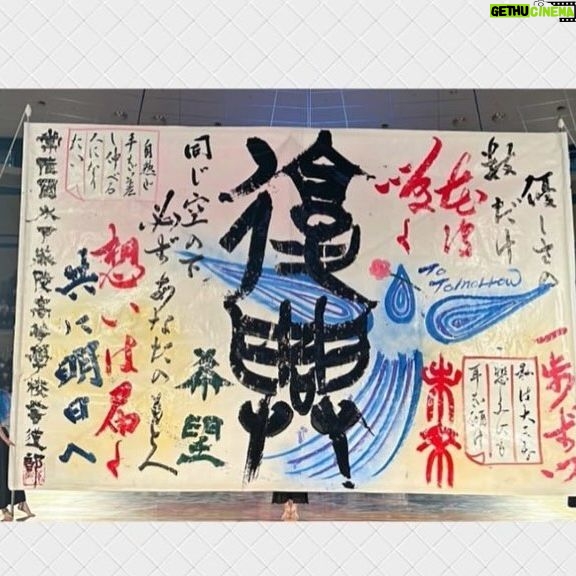 GETHUCINEMA
優しさの
数だけ
花は
咲く
To Tomorrow
一歩ずつ
悲しみにも
耳を傾け
未来
復興
同じ空の下
希望
必ずあなたのもとへ
想いは届く
共に明日へ
自然に
手を差
し伸べる
人になり
たい
常陸國水戸葵陵高等學校書道部